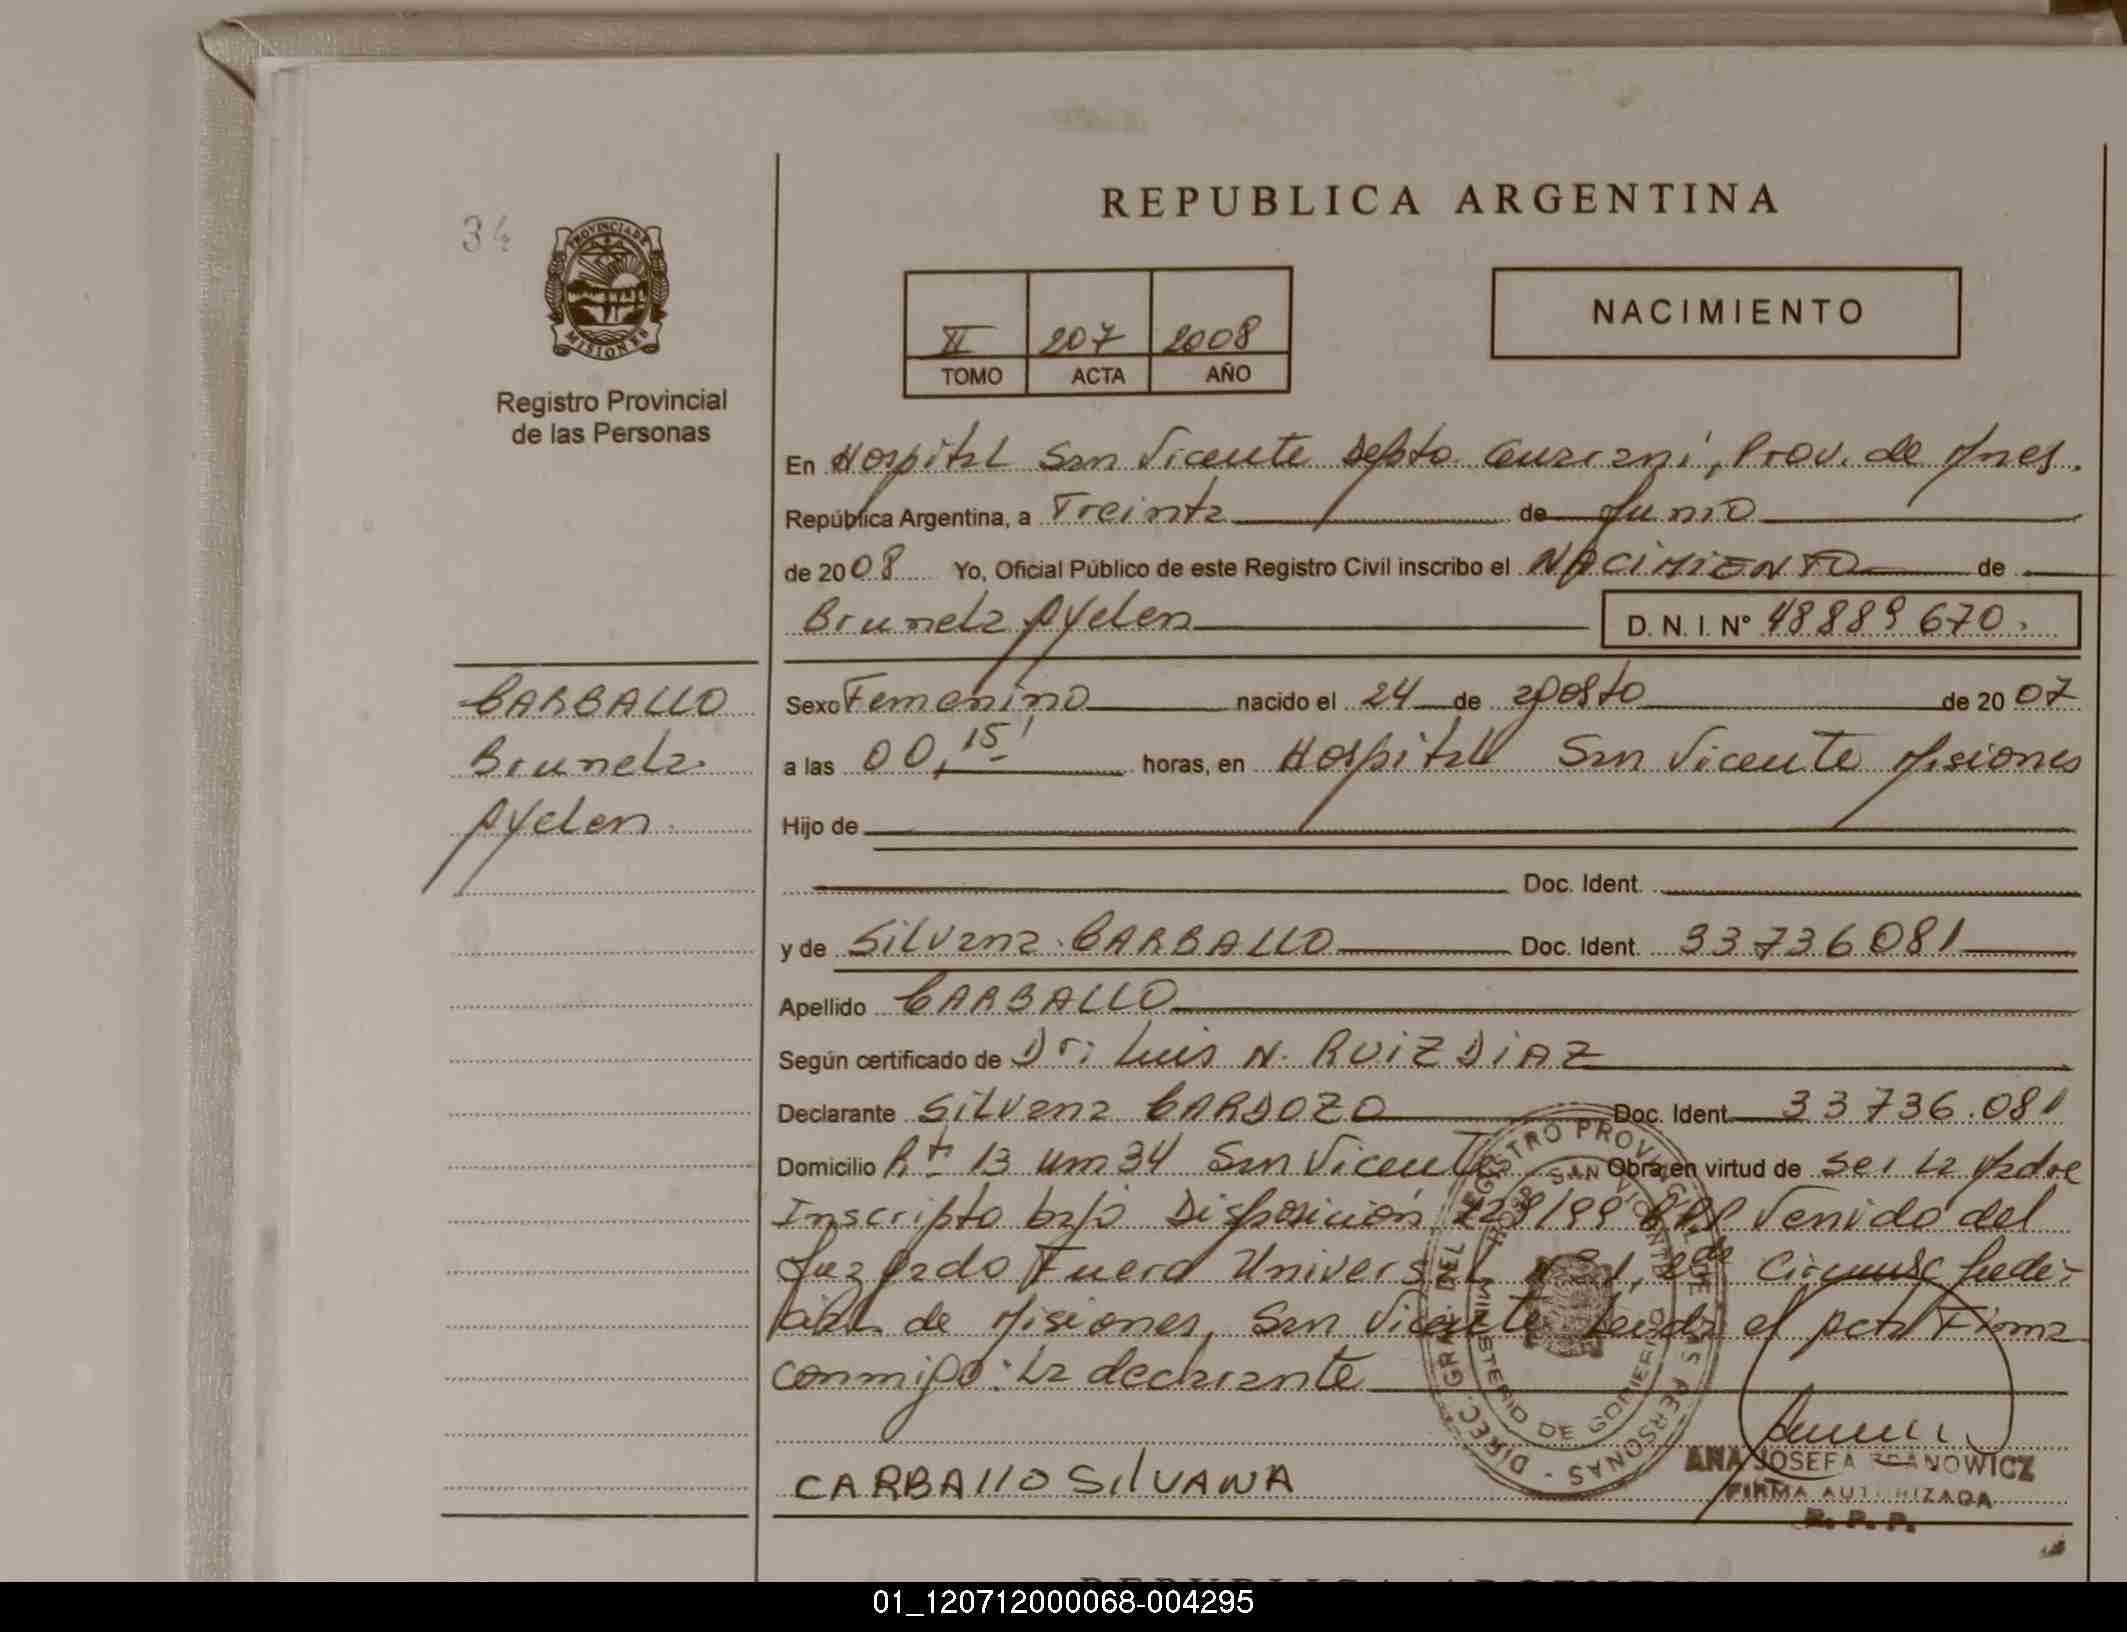 REPUBLICA ARGENTINA
34
PROVINCIA DE
MISIONES
Registro Provincial
de las Personas
II 207 2008
TOMO ACTA AÑO
NACIMIENTO
En Hospital San Vicente Depto Guarani, Prov. de Mnes.
República Argentina, a Treinta de Junio
de 2008 Yo, Oficial Público de este Registro Civil inscribo el NACIMIENTO de
Brunela Ayelen D. N. I. Nº 48889670.
CARBALLO
Brunela
Ayelen
Sexo Femenino nacido el 24 de agosto de 2007
a las 00,15' horas, en Hospital San Vicente Misiones
Hijo de
Doc. Ident.
y de Silvana CARBALLO Doc. Ident. 33736081
Apellido CARBALLO
Según certificado de Dr. Luis N. RUIZ DIAZ
Declarante Silvana CARDOZO Doc. Ident. 33736.081
Domicilio Rta 13 Km 34 San Vicente Obra en virtud de ser la Madre
Inscripto bajo Disposición /99 RPP Venido del
Juzgado Fuero Universal Nº 1, 2da Circunsc Judi-
cial de Misiones, San Vicente Leida el acta Firma
conmigo: La declarante
CARBALLO SILVANA
DIREC. GRAL. DEL REGISTRO PROVINCIAL DE LAS PERSONAS
HOSP. SAN VICENTE
MINISTERIO DE GOBIERNO
ANA JOSEFA
FIRMA AUTORIZADA
R. P. P.
REPUBLICA ARGENTINA
01_120712000068-004295